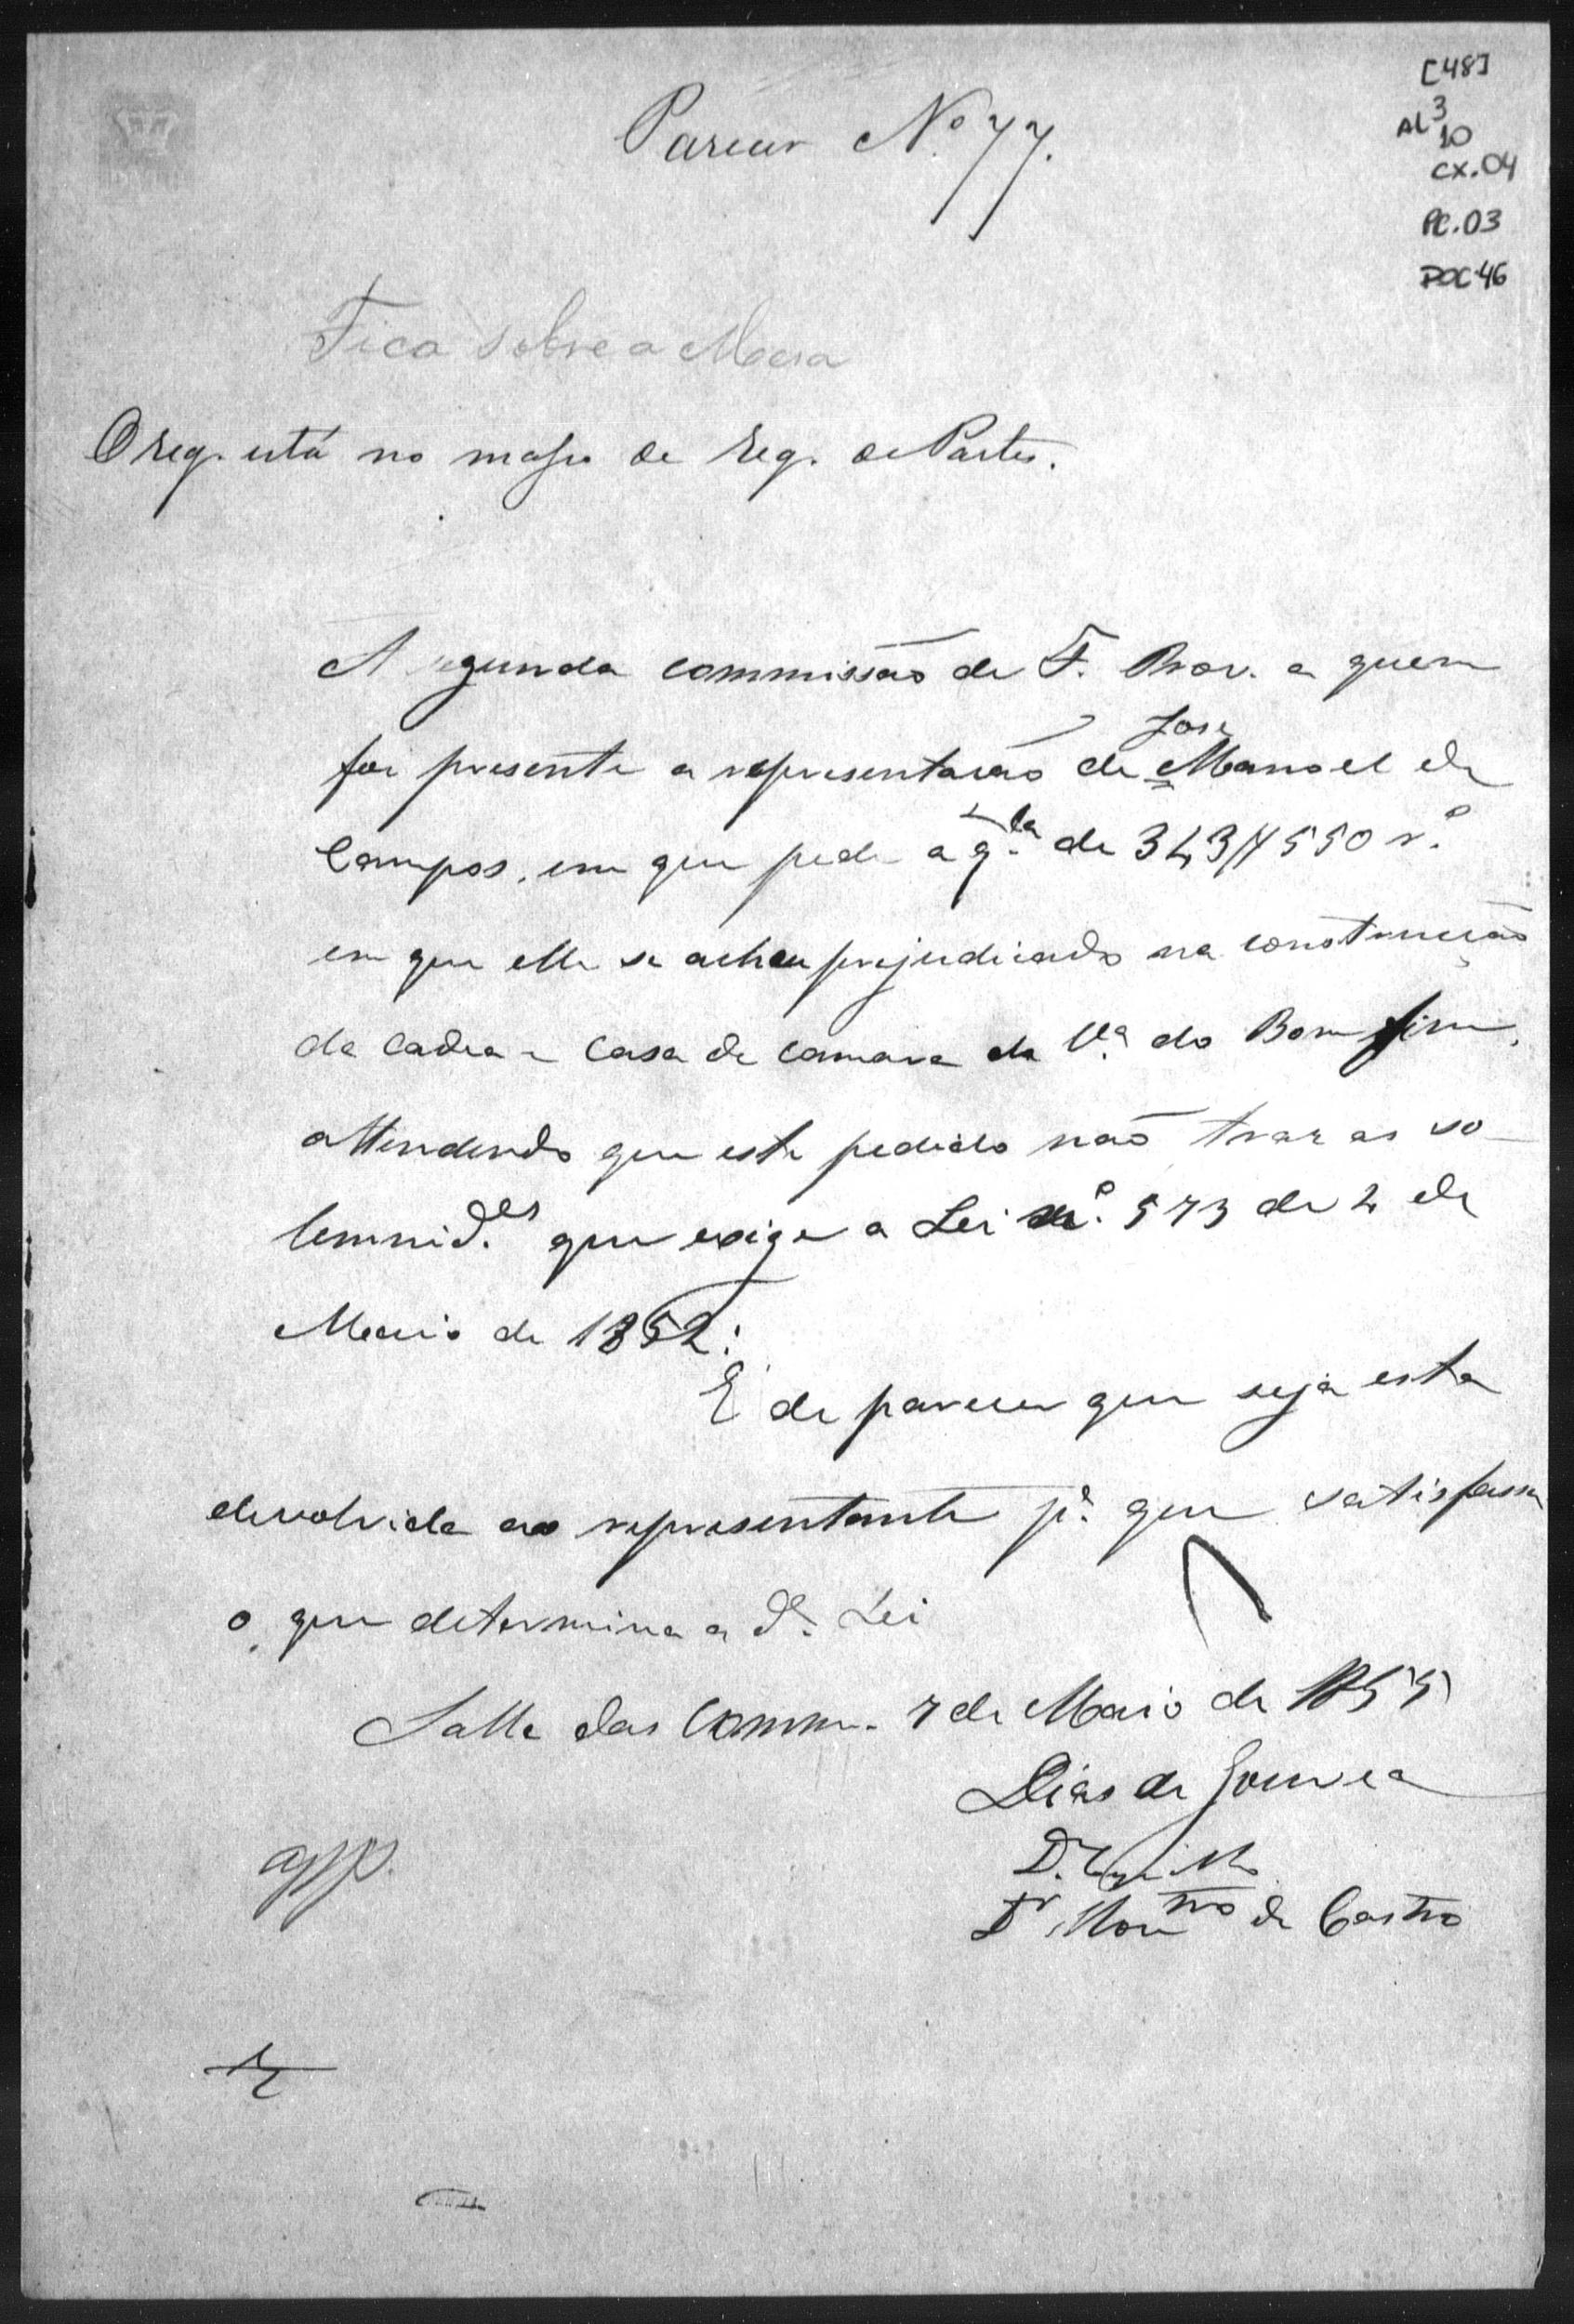 [48]
AL 3
10
cx.04
PC.03
DOC 46
Parecer Nº 77.
Fica sobre a Mesa
O req. está no masso de req. de Partes.
A segunda commissão de F. Prov. a quem
foi presente a representação de José Manoel de
Campos, em que pede a q.ta de 323$550 r.s
em que elle se achou prejudicado na construcção
da cadea e casa de camara da V.ª do Bom fim,
attendendo que este pedido não traz as so-
lemnid.es que exige a Lei nº. 573 de 2 de
Maio de 1852:
É de parecer que seja esta
devolvida ao representante pª. que satisfassa
o que determina a dª. Lei
Salla das Comm. 7 de Maio de 1855
Dias de Gouvea
D.
Dr Montro de Castro